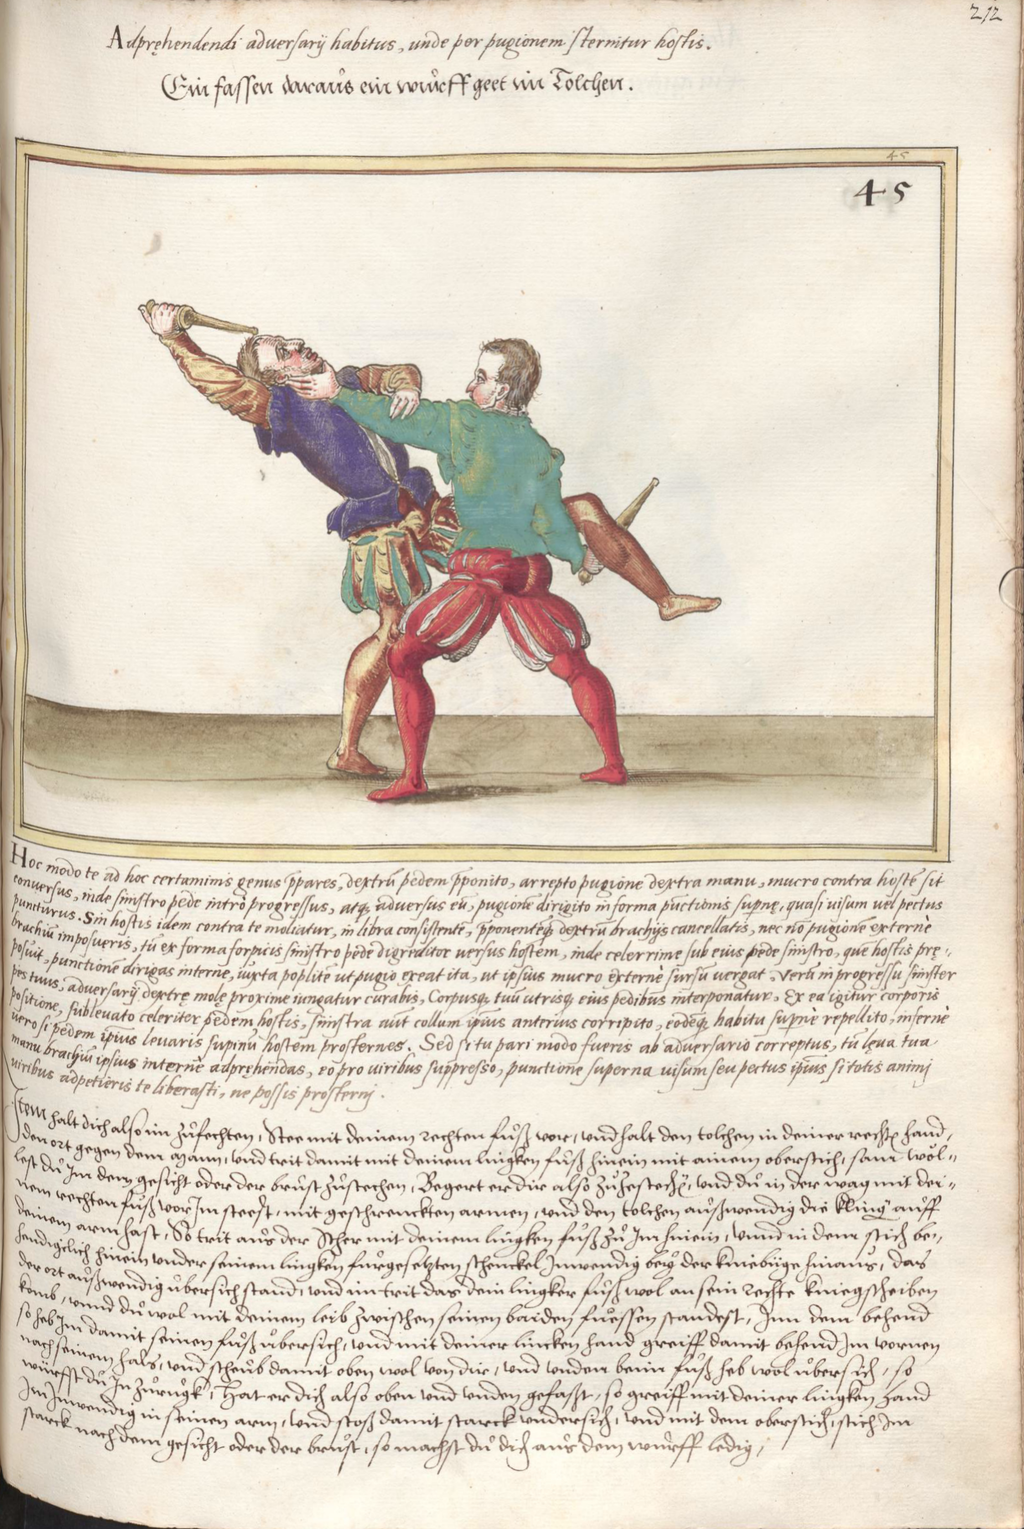 212
Adpręhendendi adversarij habitus, unde per pugionem sternitur hostis.
Ein fassen daraus ein wurff geet im Tolchen.
45
45
Hoc modo te ad hoc certaminis genus p̄pares, dextrū pedem p̄ponito, arrepto pugione dextra manu, mucro contra hostē sit
conversus, inde sinistro pede intrò progressus, atq; adversus eū, pugionē dirigito in forma pūctionis supernę, quasi visum vel pectus
puncturus. Sin hostis idem contra te moliatur, in libra consistentē, p̄ponenteq; dextrū brachijs cancellatis, nec nō pugionē externè
brachiū imposueris, tū ex forma forpicis sinistro pede digreditor versus hostem, inde celerrime sub eius pede sinistro, quē hostis prę-
posuit, punctionē dirigas internè, iuxta poplitē ut pugio exeat ita, ut ipsius mucro externè sursū vergat. Verū in progressu sinister
pes tuus, adversarij dextrę molę proxime iungatur curabis, Corpusq; tuū utrisq; eius pedibus interponatur, Ex ea igitur corporis
positione, sublevato celeriter pedem hostis, sinistra aūt collum ipius anterius corripito, eodēq; habitu supernè repellito, infernè
vero si pedem ipius levaris supinū hostem prosternes. Sed si tu pari modo fueris ab adversario correptus, tū lęva tua
manu brachiū ipsius internè adpręhendas, eo pro viribus suppresso, punctione superna visum seu pectus ipius si totis animi
viribus adpetieris te liberasti, ne possis prosterni.
Item halt dich also im zufechten, Stee mit deinem rechten fuß vor, und halt den tolchen in deiner rechtn hand,
den ort gegen dem mann, und trit damit mit deinem lingken fuß hinein mit ainem oberstich, sam wöl-
lest du Im dem gesicht oder der brust zustechen, Begert er dir also zuhestechn, und du in der wag mit dei-
nem rechten fuß vor Im steest, mit geschrenckten armen, und den tolchen außwendig die kling auff
deinem arm hast, So trit aus der Scher mit deinem lingken fuß zu Im hinein, unnd in dem stich be-
hendigclich hinein under seinem lingken furgesetzten schenckel Inwendig beÿ der kniebüge hinaus, das
der ort außwendig übersich stand, und im trit das dein lingker fuß wol an sein rechte kniegscheiben
komb, unnd du wol mit deinem leib zwischen seinen baiden fuessen standest, Inn dem behend
so heb Im damit seinen fuß übersich, und mit deiner lincken hand greiff damit behend Im vornen
nach seinem hals, und scheub damit oben wol von dir, und unden beim fuß heb wol übersich, so
würffst du In zuruck, Hat er dich also oben und unden gefasst, so greiff mit deiner lingken hand
Im Inwendig in seinen arm, und stoß damit starck undersich, und mit dem oberstich, stich Im
starck nach dem gesicht oder der brust, so machst du dich aus dem wurff ledig,